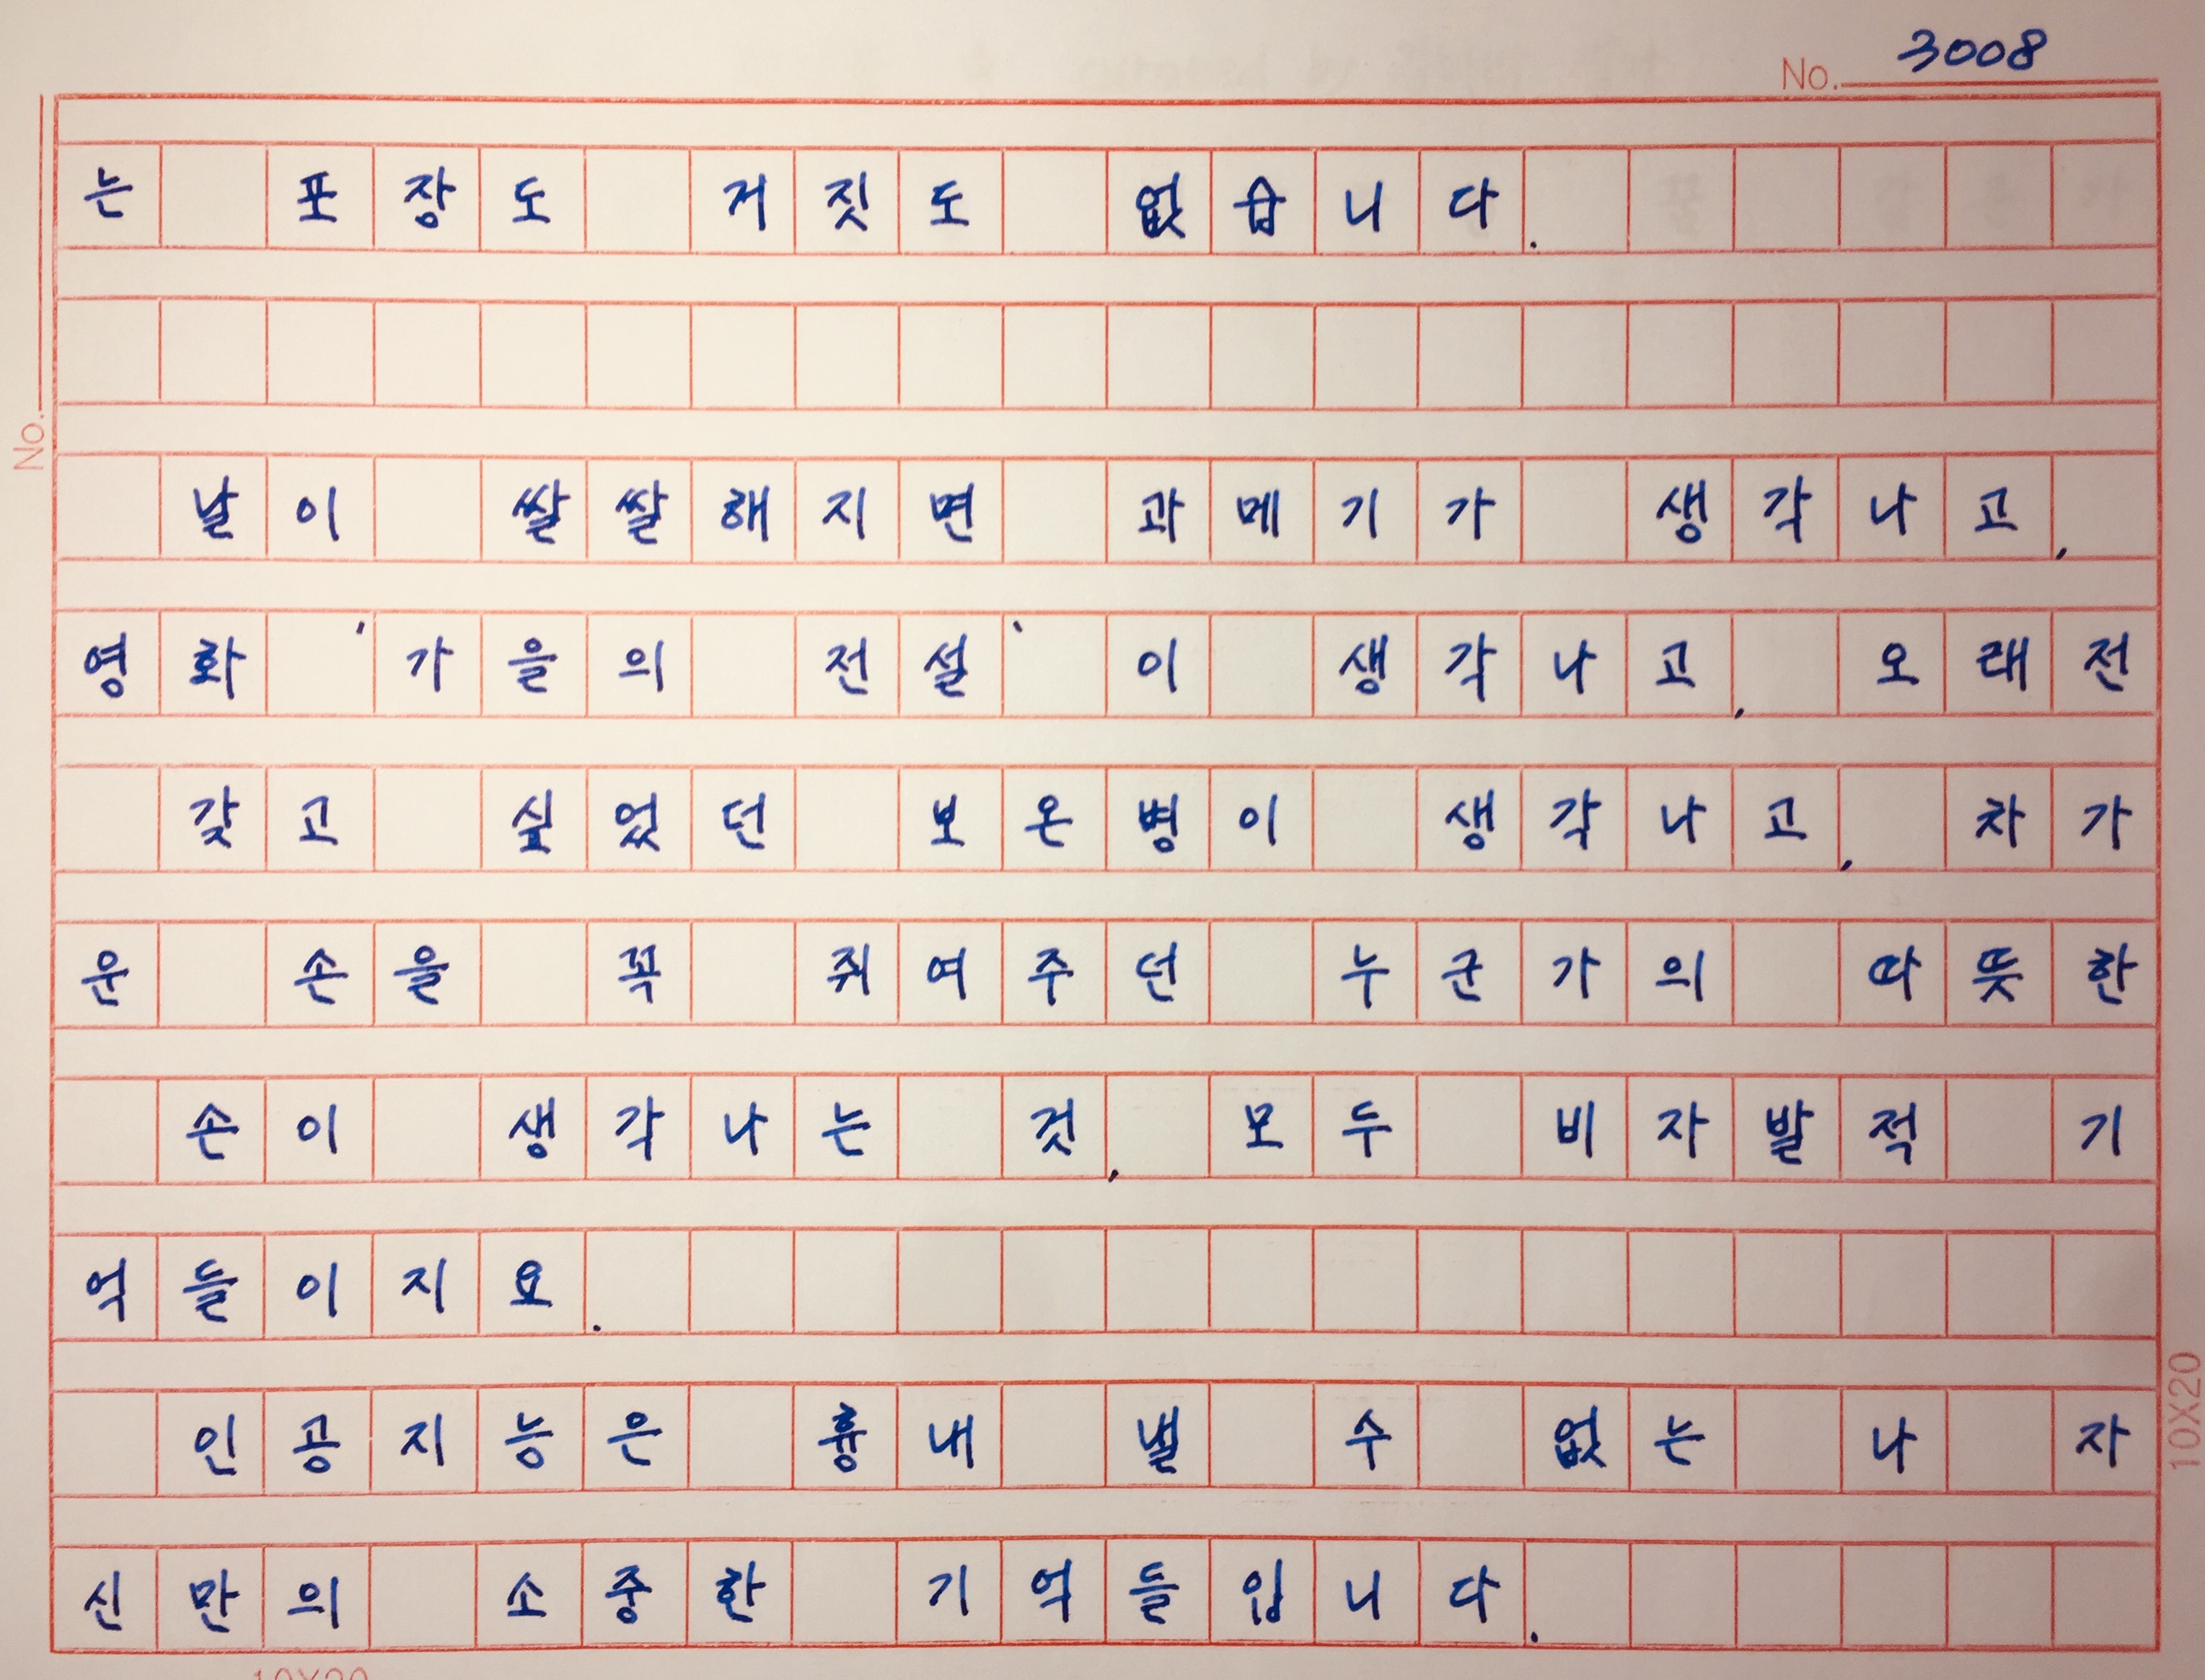 No. 3008
는 포장도 거짓도 없습니다.
날이 쌀쌀해지면 과메기가 생각나고,
영화 '가을의 전설'이 생각나고, 오래전
갖고 싶었던 보온병이 생각나고, 차가
운 손을 꼭 쥐여주던 누군가의 따뜻한
손이 생각나는 것, 모두 비자발적 기
억들이지요.
인공지능은 흉내 낼 수 없는 나 자
신만의 소중한 기억들입니다.
No.
10X20
10X20